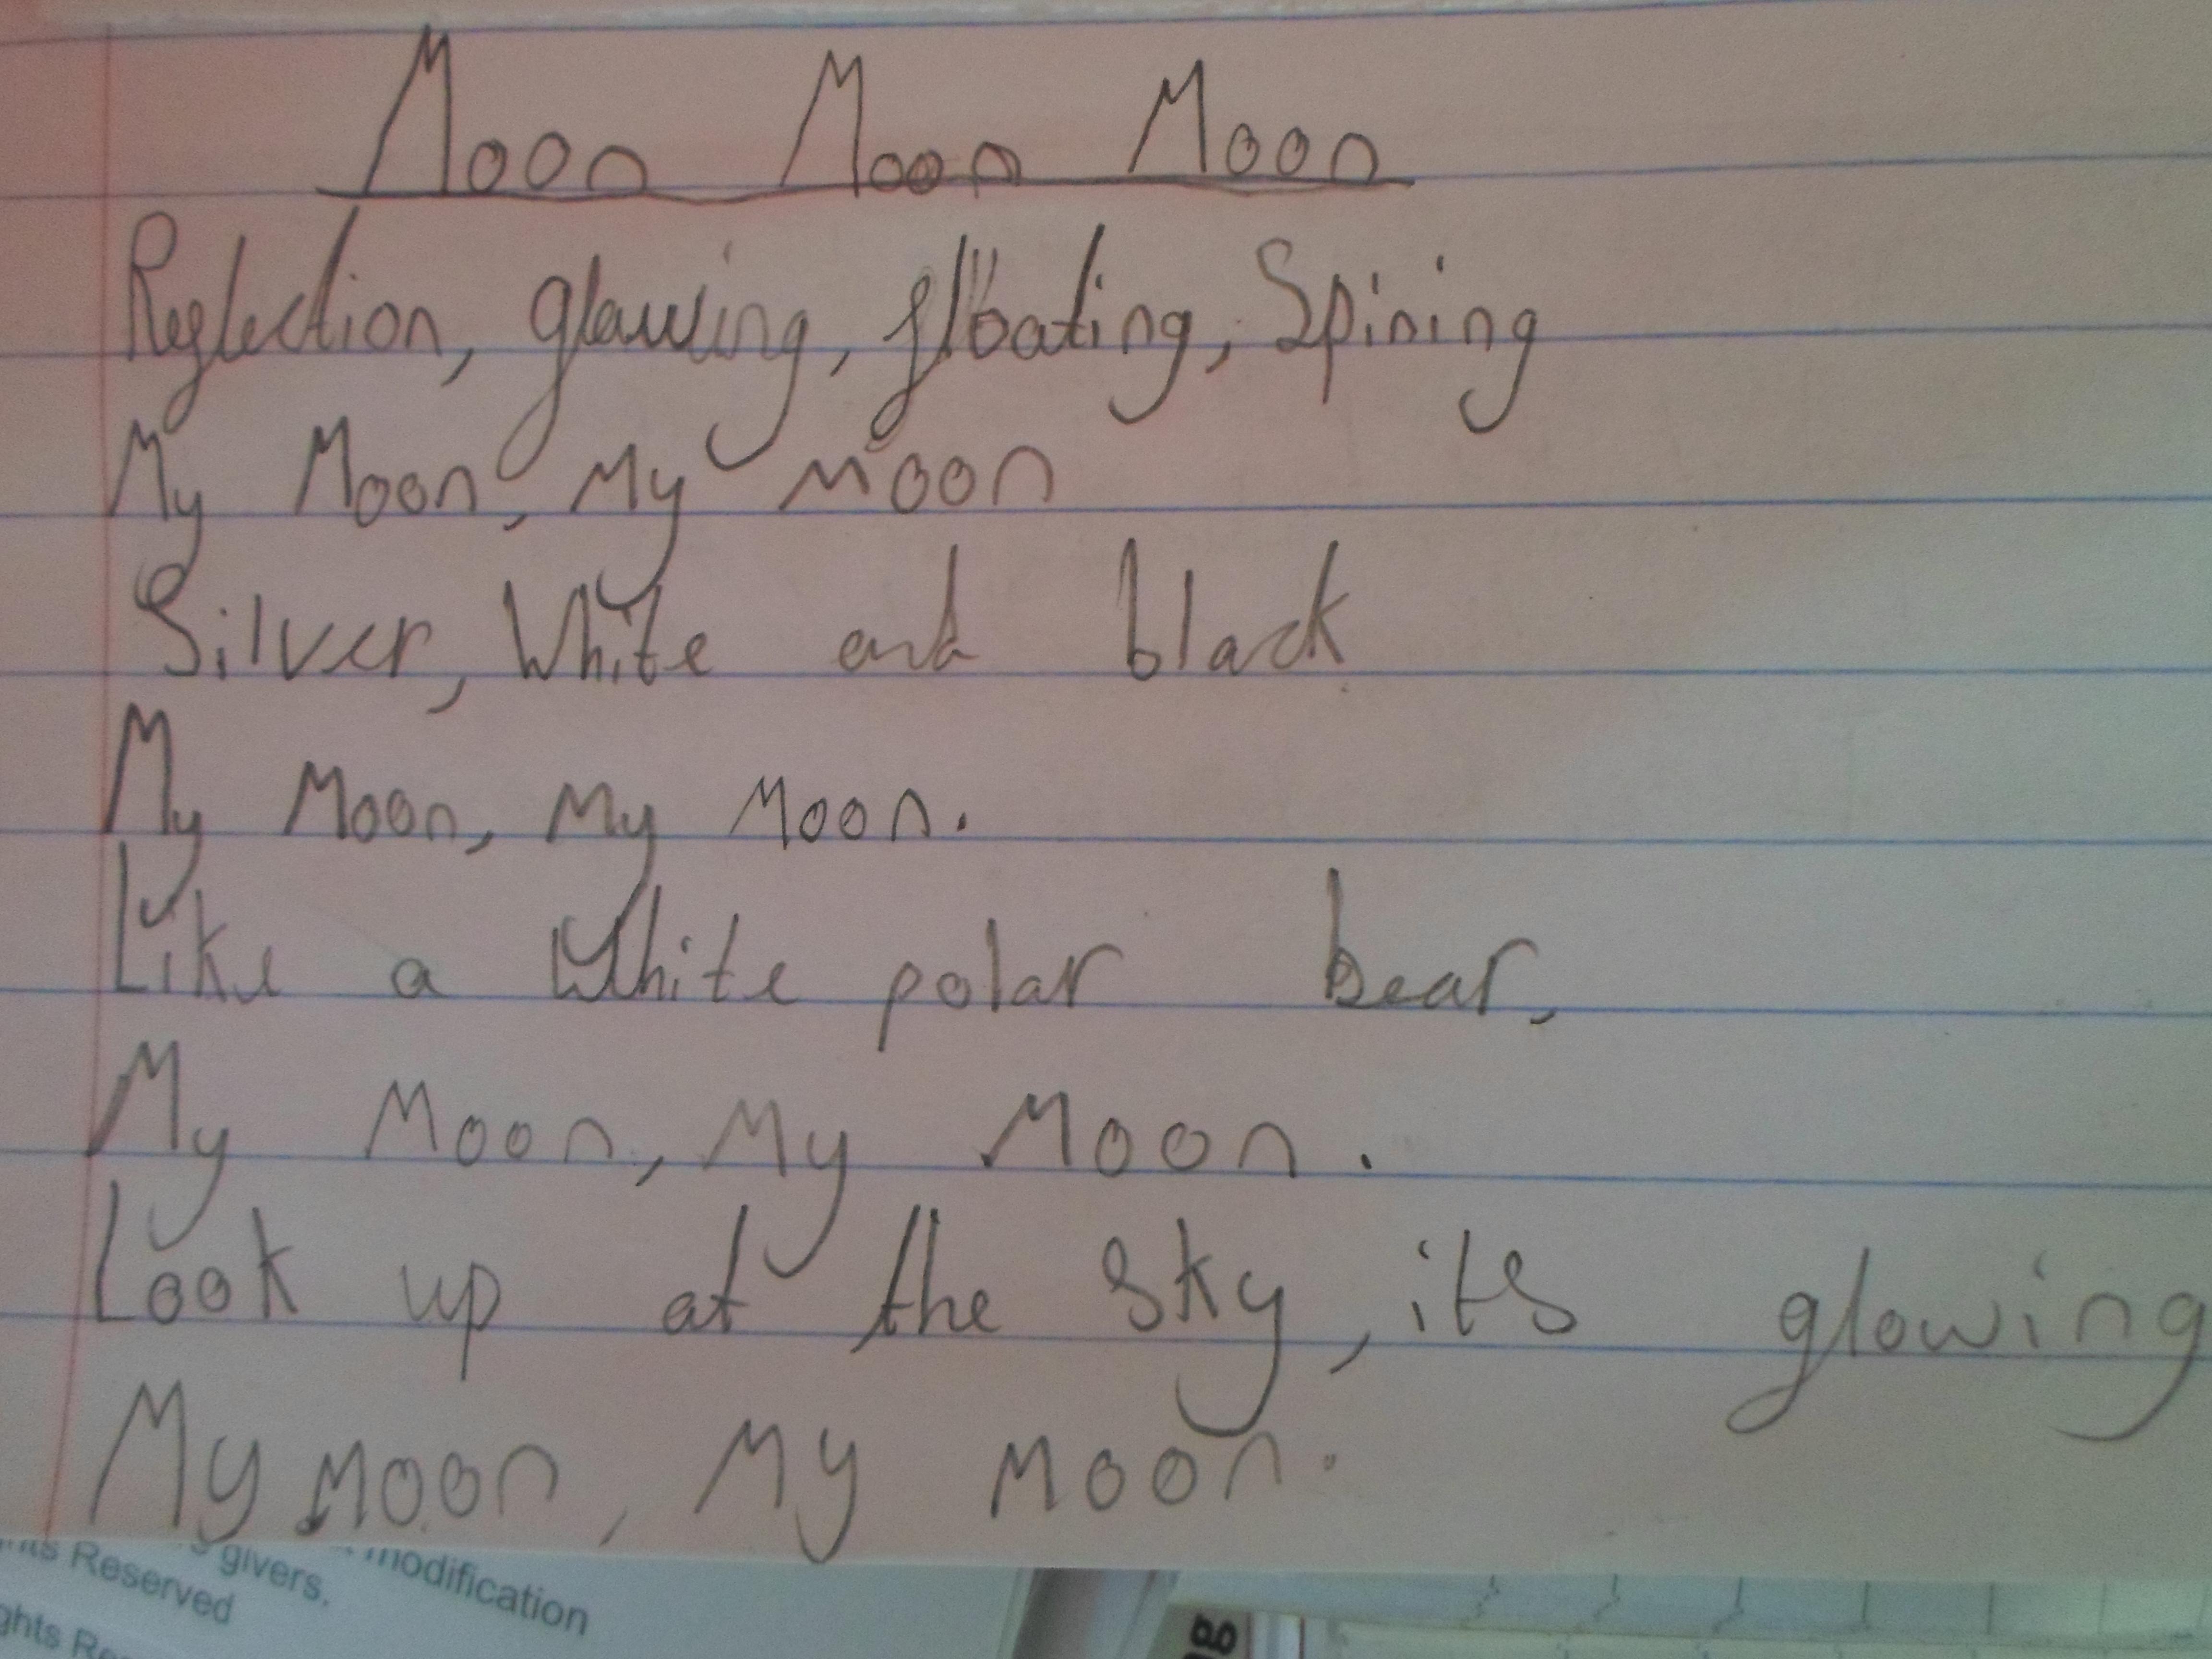 Moon Moon Moon
Reflection, glowing, floating, Spining
My Moon, My Moon
Silver, White and black
My Moon, My Moon.
Like a White polar bear,
My Moon, My Moon.
Look up at the sky, its glowing
My Moon, My Moon.
givers. modification
Reserved